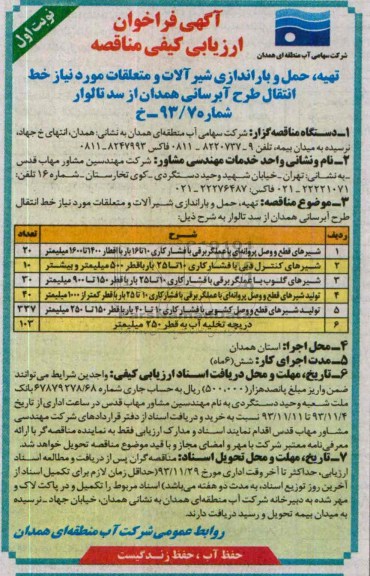 نوبت اول
آگهی فراخوان
ارزیابی کیفی مناقصه
شرکت سهامی آب منطقه ای همدان
تهیه، حمل و باراندازی شیرآلات و متعلقات مورد نیاز خط
انتقال طرح آبرسانی همدان از سد تالوار
شماره ۹۳/۷-خ
۱-دستگاه مناقصه گزار: شرکت سهامی آب منطقه‌ای همدان به نشانی: همدان، انتهای خ جهاد،
نرسیده به میدان بیمه، تلفن ۹-۸۲۲۰۷۳۷-۰۸۱۱ فاکس ۸۲۴۷۹۹۲-۰۸۱۱
۲-نام و نشانی واحد خدمات مهندسی مشاور: شرکت مهندسین مشاور مهاب قدس
-به نشانی: تهران-خیابان شهید وحید دستگردی-کوی تخارستان-شماره ۱۶ تلفن:
۲۲۲۲۱۰۷۱-۰۲۱ فاکس: ۲۲۲۷۶۴۸۷-۰۲۱
۳-موضوع مناقصه: تهیه، حمل و باراندازی شیرآلات و متعلقات مورد نیاز خط انتقال
طرح آبرسانی همدان از سد تالوار به شرح ذیل:
ردیف شرح تعداد
۱ شیرهای قطع و وصل پروانه‌ای با عملگر برقی با فشار کاری ۱۰تا۱۶ بار با اقطار ۱۴۰۰تا۱۶۰۰ میلیمتر ۲۰
۲ شیرهای کنترل دبی با فشار کاری ۱۰ تا ۲۵ بار با قطر ۵۰۰ میلیمتر و بیشتر ۱۰
۳ شیرهای گلوب با عملگر برقی با فشار کاری ۱۰ تا ۲۵ بار با قطر ۱۵۰ تا ۹۰۰ میلیمتر ۳۰
۴ تولید شیرهای قطع و وصل پروانه‌ای با عملگر برقی با فشار کاری ۱۰ تا ۲۵ بار با قطر کمتر از ۱۰۰۰ میلیمتر ۴۰
۵ تولید شیرهای قطع و وصل کشویی با فشار کاری ۱۰ تا ۴۰ بار با قطر ۱۵۰ تا ۲۵۰ میلیمتر ۳۳۷
۶ دریچه تخلیه آب به قطر ۲۵۰ میلیمتر ۱۰۳
۴-محل اجرا: استان همدان
۵-مدت اجرای کار: شش (۶ماه)
۶-تاریخ، مهلت و محل دریافت اسناد ارزیابی کیفی: واجدین شرایط می‌توانند
ضمن واریز مبلغ پانصدهزار (۵۰۰۰۰۰) ریال به حساب جاری شماره ۶۷۸۷۹۲۷۸/۶۸ بانک
ملت شعبه وحید دستگردی به نام مهندسین مشاور مهاب قدس در ساعت اداری از تاریخ
۹۳/۱۱/۴ تا ۹۳/۱۱/۱۱ نسبت به خرید و دریافت اسناد از دفتر قراردادهای شرکت مهندسی
مشاور مهاب قدس اقدام نمایند اسناد و مدارک ارزیابی فقط به نماینده مناقصه گر با ارائه
معرفی‌نامه معتبر شرکت با مهر و امضای مجاز و با قید موضوع مناقصه تحویل خواهد شد.
۷-تاریخ، مهلت و محل تحویل اسناد: مناقصه‌گران پس از دریافت و مطالعه اسناد
ارزیابی، حداکثر تا آخر وقت اداری مورخ ۹۳/۱۱/۲۹ (حداقل زمان لازم برای تکمیل اسناد از
آخرین روز توزیع اسناد، به مدت دو هفته می‌باشد) اسناد مربوط را تکمیل و در پاکت لاک و
مهر شده به دبیرخانه شرکت آب منطقه‌ای همدان به نشانی: همدان، خیابان جهاد-نرسیده
به میدان بیمه تحویل و رسید دریافت دارند.
روابط عمومی شرکت آب منطقه‌ای همدان
حفظ آب، حفظ زندگیست